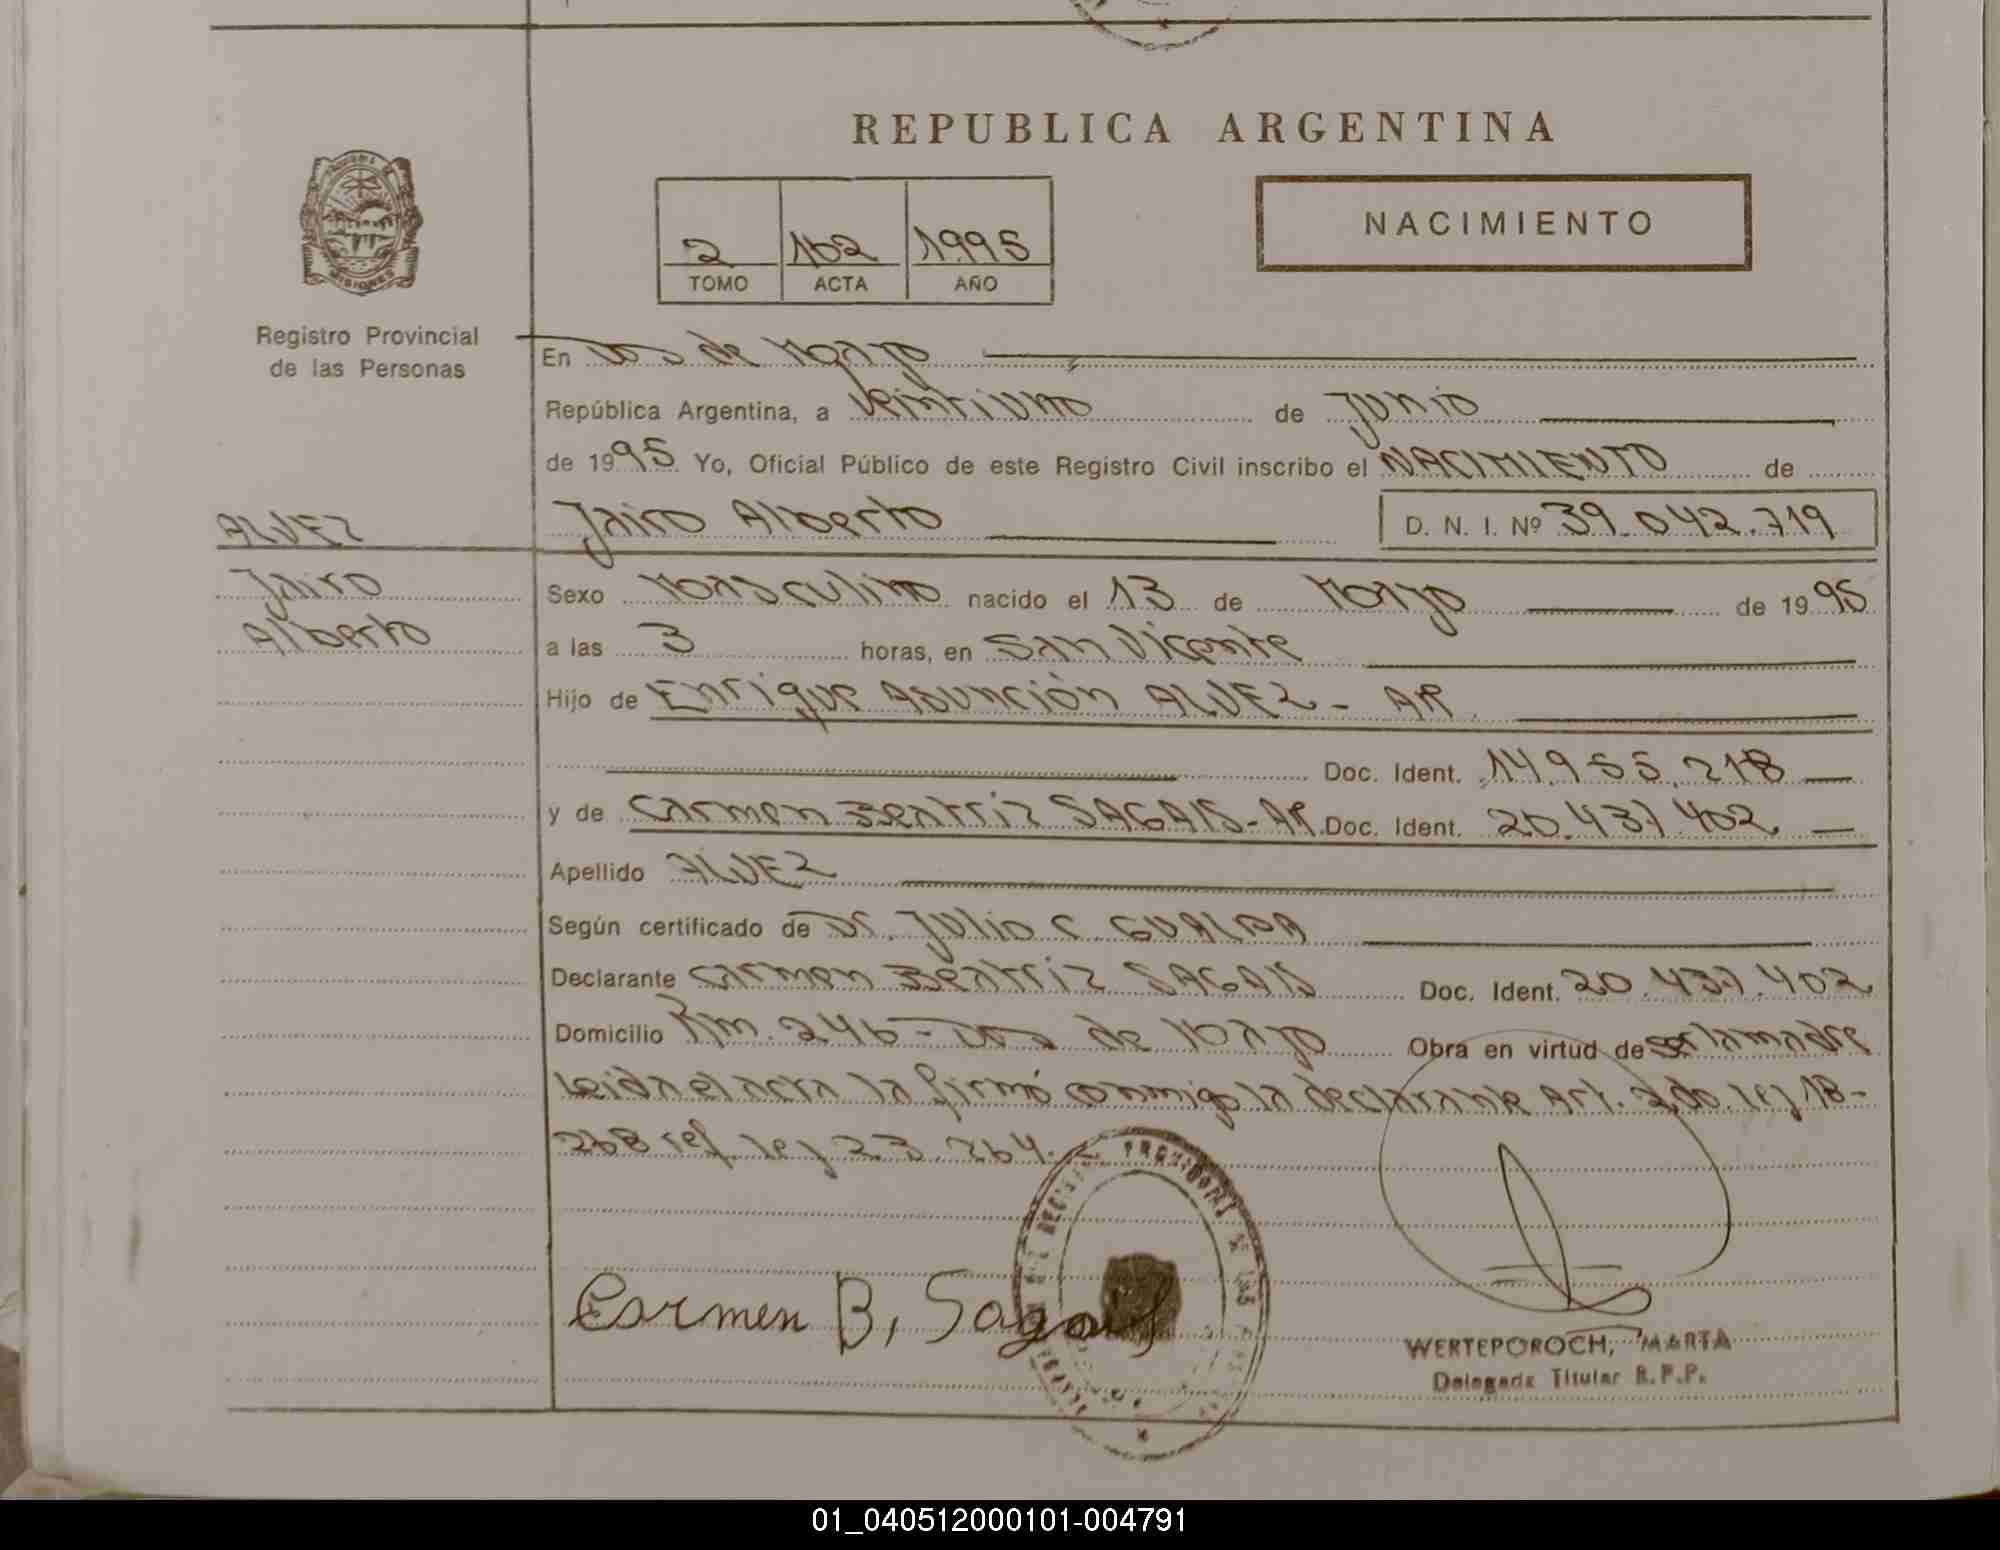 REPUBLICA ARGENTINA
NACIMIENTO
2 162 1995
TOMO ACTA AÑO
MISIONES
Registro Provincial
de las Personas
En Dos de Mayo
República Argentina, a veintiuno de Junio
de 1995 Yo, Oficial Público de este Registro Civil inscribo el NACIMIENTO de
ALVEZ
Jairo Alberto D. N. I. Nº 39.042.719
Jairo
Alberto
Sexo Masculino nacido el 13 de Marzo de 1995
a las 3 horas, en San Vicente
Hijo de Enrique Asunción ALVEZ - AR.
Doc. Ident. 14.955.218
y de Carmen Beatriz SAGAIS - AR. Doc. Ident. 20.437.402
Apellido ALVEZ
Según certificado de Dr. Julio C.
Declarante Carmen Beatriz SAGAIS Doc. Ident. 20.437.402
Domicilio Km. 246 - Dos de Mayo Obra en virtud de ser la madre
Leida el acta la firmó conmigo la declarante Art. 2do. ley 18-
268 ref. ley 23.264.
Carmen B. Sagais
WERTEPOROCH, MARTA
Delegada Titular R.P.P.
01_040512000101-004791